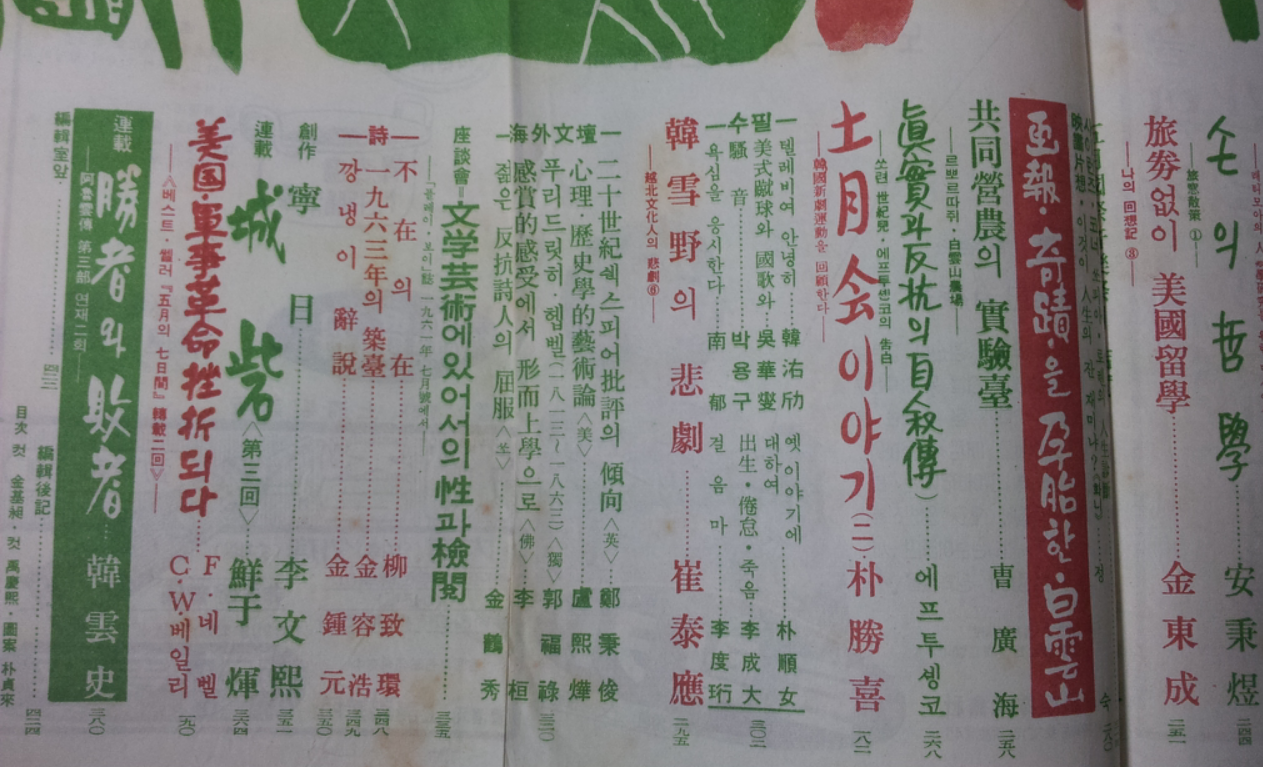 손의 哲學 安秉煜 二四四
旅窓散策 ①
旅券없이 美國留學 金東成 二五一
나의 回想記 ③
画報・奇蹟을 孕胎한・白雲山
共同營農의 實驗臺 曺廣海 二五八
르뽀르따쥬・白雲山農場
眞實과 反抗의 自敍傳 에프투셍코 二六八
쏘련 世紀兒・에프투셍코의 告白
土月会이야기(二) 朴勝喜 一八二
韓國新劇運動을 回顧한다
隨筆
텔레비여 안녕히 韓沽劤
옛 이야기에 대하여 朴順女
美式蹴球와 國歌와 吳華燮
出生・倦怠・죽음 李成大
騷音 박용구
욕심을 응시한다 南郁
걸음마 李度珩
三〇二
韓雪野의 悲劇 崔泰應 二九五
越北文化人의 悲劇⑥
海外文壇
二十世紀쉑스피어批評의 傾向〈英〉 鄭秉俊
心理・歷史學的藝術論〈美〉 盧熙燁
푸리드릿히・헵벨(一八一三~一八六三)〈獨〉 郭福祿 三一〇
感賞的感受에서 形而上學으로〈佛〉 李桓
젊은 反抗詩人의 屈服〈羊〉 金鶴秀
座談會=文学芸術에있어서의 性과檢閱 三三五
「플레이 보이」誌 一九六一年 七月號에서
詩
不在의 在 柳致環 三四八
一九六三年의 築臺 金容浩 三四九
깡냉이 辭說 金鍾元 三五〇
創作 寧日 李文熙 三五一
連載 城砦〈第三回〉 鮮于煇 三六四
美国・軍事革命挫折되다 F・네벨 C・W・베일리 一九〇
〈베스트・쎌러『五月의 七日間』轉載二回〉
連載 勝者와 敗者 韓雲史 三八〇
阿魯雲傳 第三部 연재二회
編輯室앞 四二二
編輯後記 四二四
目次 컷 金基昶・컷 禹慶熙・圖案 朴貞來